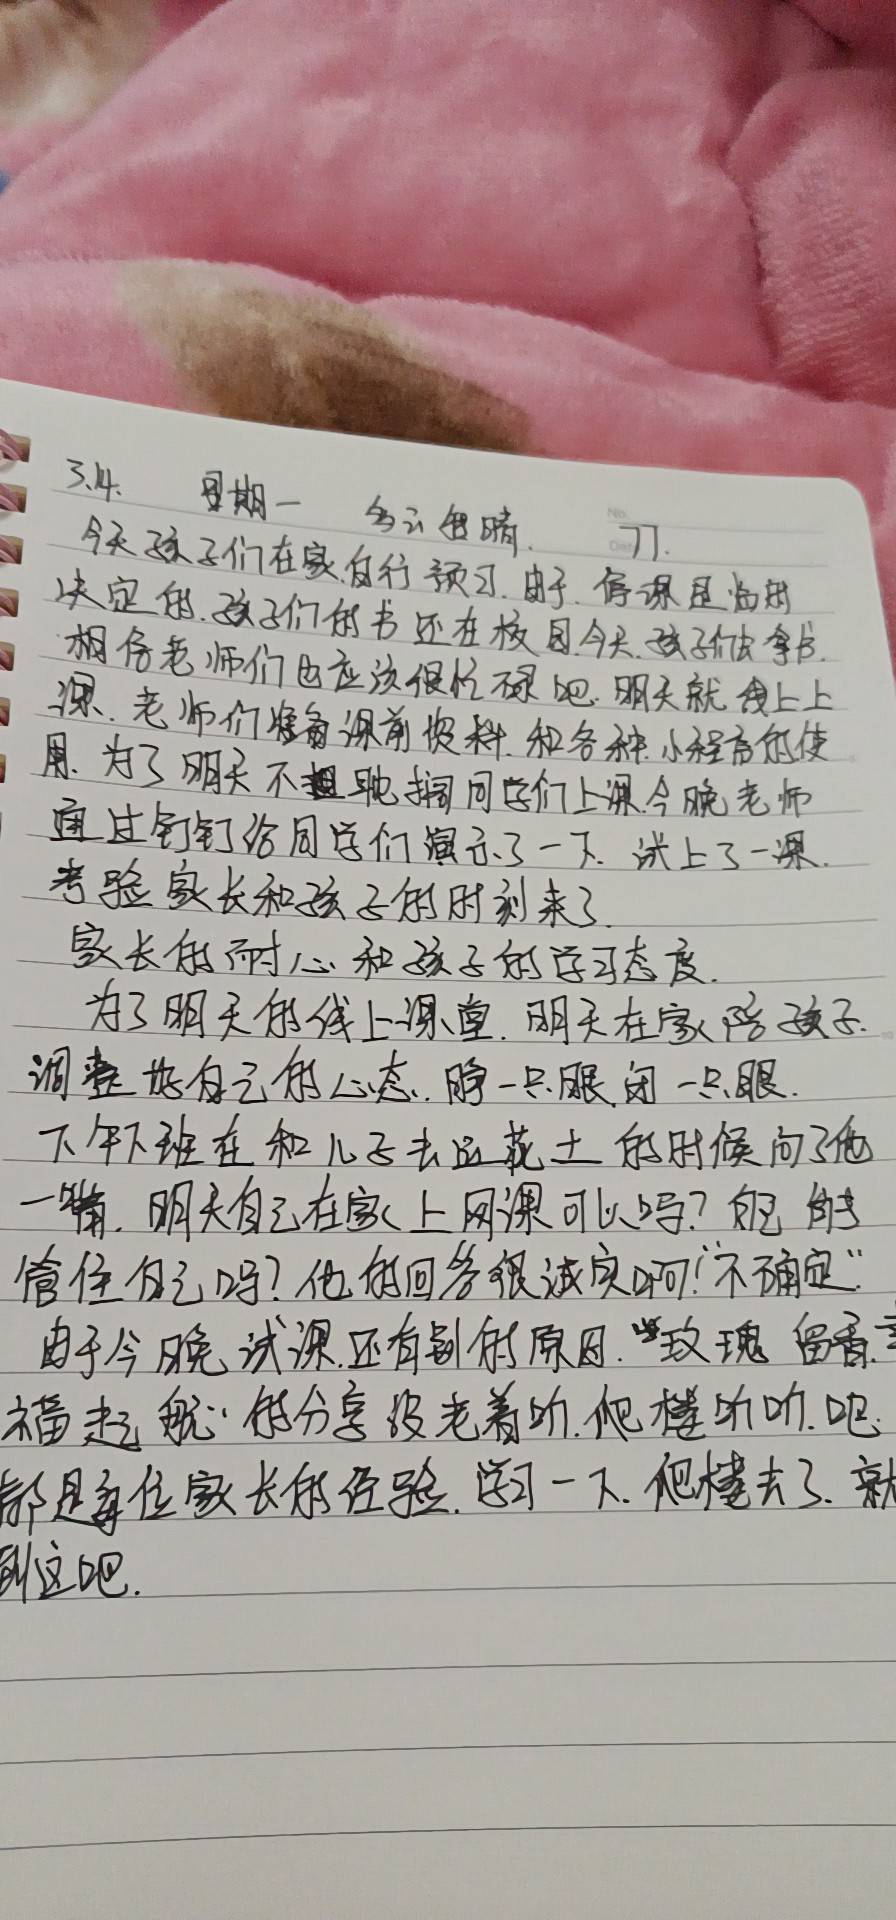 3.14. 星期一 多云转晴. 77.
今天孩子们在家自行预习.由于.停课是临时
决定的.孩子们的书还在校园.今天.孩子们去拿书.
相信老师们也应该很忙碌吧.明天就线上上
课.老师们准备课前资料.和各种小程序的使
用.为了明天不耽搁同学们上课.今晚老师
通过钉钉给同学们演示了一下.试上了一课.
考验家长和孩子的时刻来了.
家长的耐心和孩子的学习态度.
为了明天的线上课堂.明天在家陪孩子.
调整好自己的心态.睁一只眼闭一只眼.
下午下班在和儿子去运花土的时候问了他
一嘴.明天自己在家上网课可以吗?自己能
管住自己吗?他的回答很诚实啊!"不确定"
由于今晚试课.还有别的原因."玫瑰留香.幸
福起航"的分享没老着听.爬楼听听.吧.
都是每位家长的经验.学习一下.爬楼去了.就
到这吧.